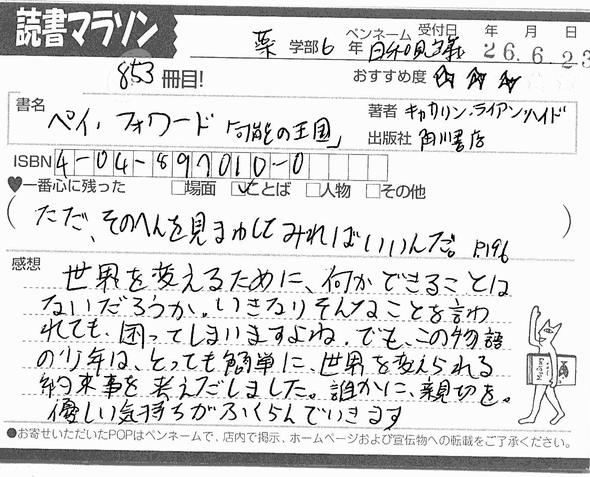 読書マラソン
薬 学部 6 年 ペンネーム 受付日 年 月 日
26.6.23
853 冊目!
おすすめ度 ★★★
書名 ペイ・フォワード 「可能の王国」
著者 キャサリン・ライアン・ハイド
出版社 角川書店
ISBN 4-04-897010-0
♥一番心に残った □場面 ☑ことば □人物 □その他
(ただ、そのへんを見まわしてみればいいんだ。 P.196)
感想
世界を変えるために、何かできることは
ないだろうか。いきなりそんなことを言わ
れても、困ってしまいますよね。でも、この物語
の少年は、とっても簡単に、世界を変えられる
約束事を考えだしました。誰かに、親切を。
優しい気持ちがふくらんでいきます
●お寄せいただいたPOPはペンネームで、店内で掲示、ホームページおよび宣伝物への転載をご了承ください。